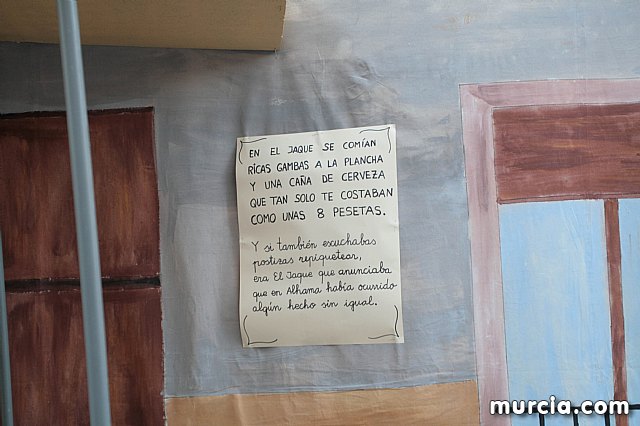 EN EL JAQUE SE COMÍAN
RICAS GAMBAS A LA PLANCHA
Y UNA CAÑA DE CERVEZA
QUE TAN SOLO TE COSTABAN
COMO UNAS 8 PESETAS.
Y si también escuchabas
postizas repiquetear,
era El Jaque que anunciaba
que en Alhama había ocurrido
algún hecho sin igual.
murcia.com